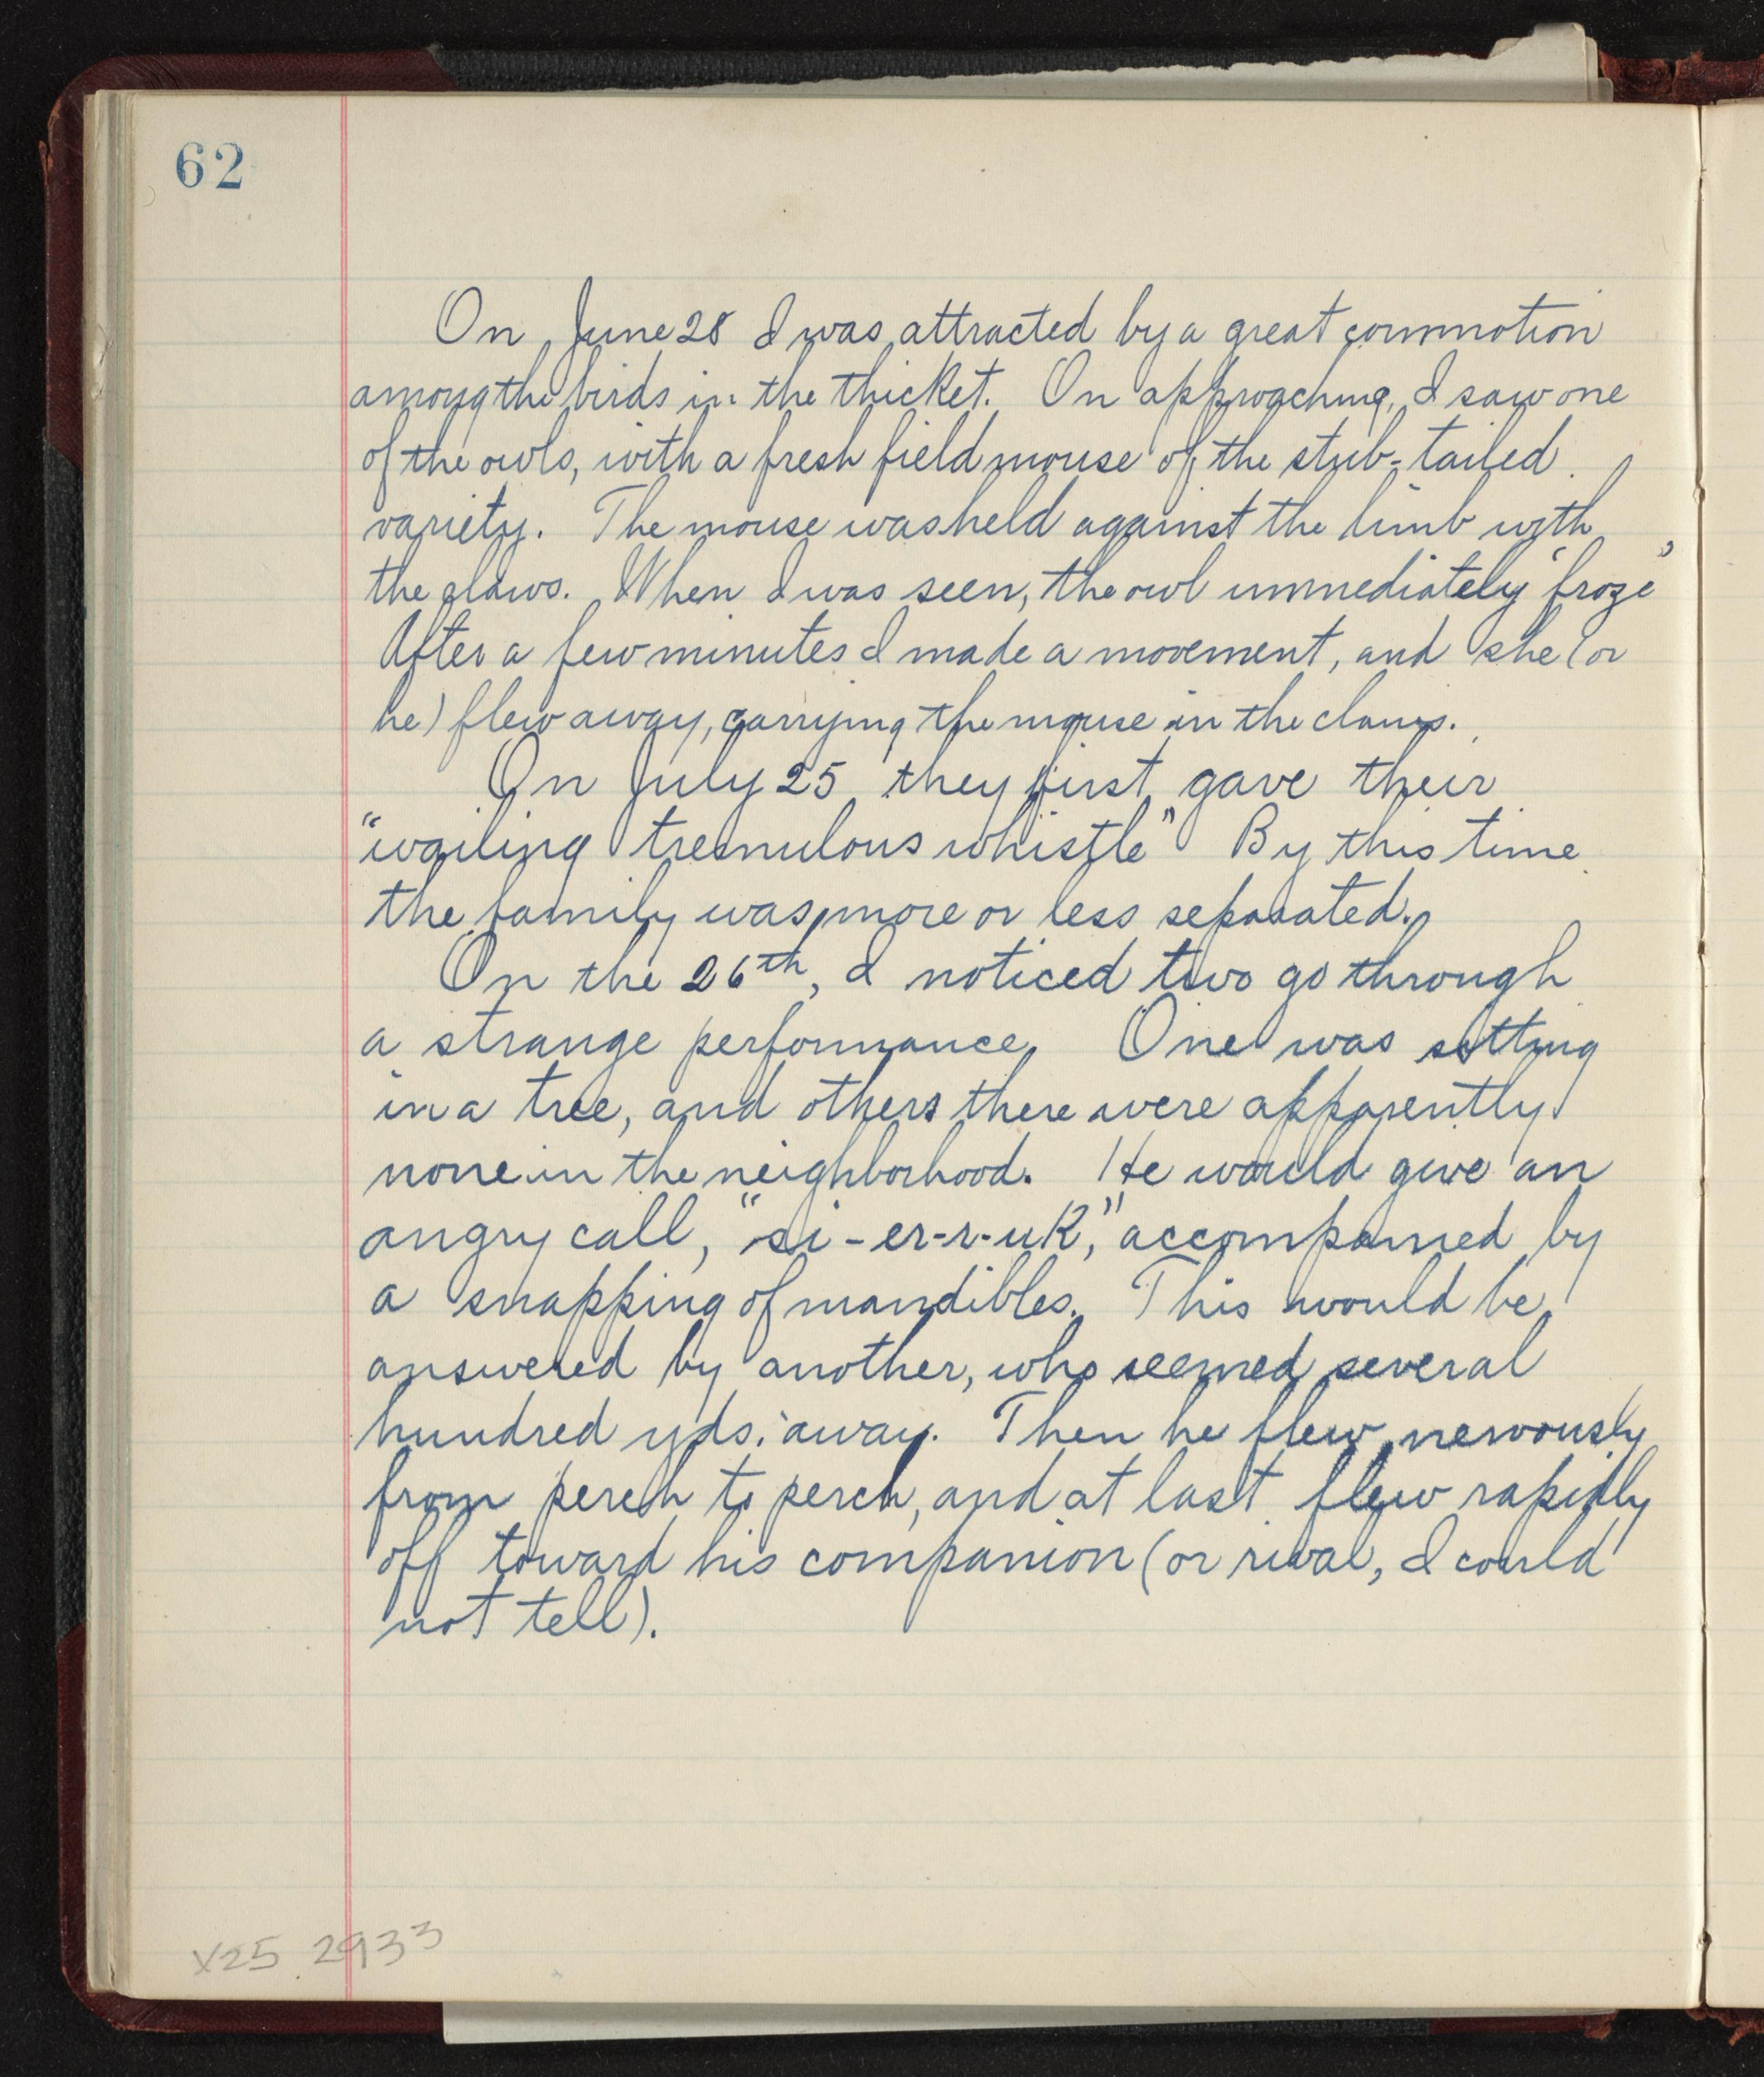 62
On June 28 I was attracted by a great commotion
among the birds in the thicket. On approaching, I saw one
of the owls, with a fresh field mouse of the stub-tailed
variety. The mouse was held against the limb with
the claws. When I was seen, the owl immediately "froze"
After a few minutes I made a movement, and she (or
he) flew away, carrying the mouse in the claws.
On July 25 they first gave their
"wailing tremulous whistle" By this time
the family was more or less separated.
On the 26th, I noticed two go through
a strange performance. One was sitting
in a tree, and others there were apparently
none in the neighborhood. He would give an
angry call, "si-er-r-uk," accompanied by
a snapping of mandibles. This would be
answered by another, who seemed several
hundred yds. away. Then he flew nervously
from perch to perch, and at last flew rapidly
off toward his companion (or rival, I could
not tell).
X25.2933